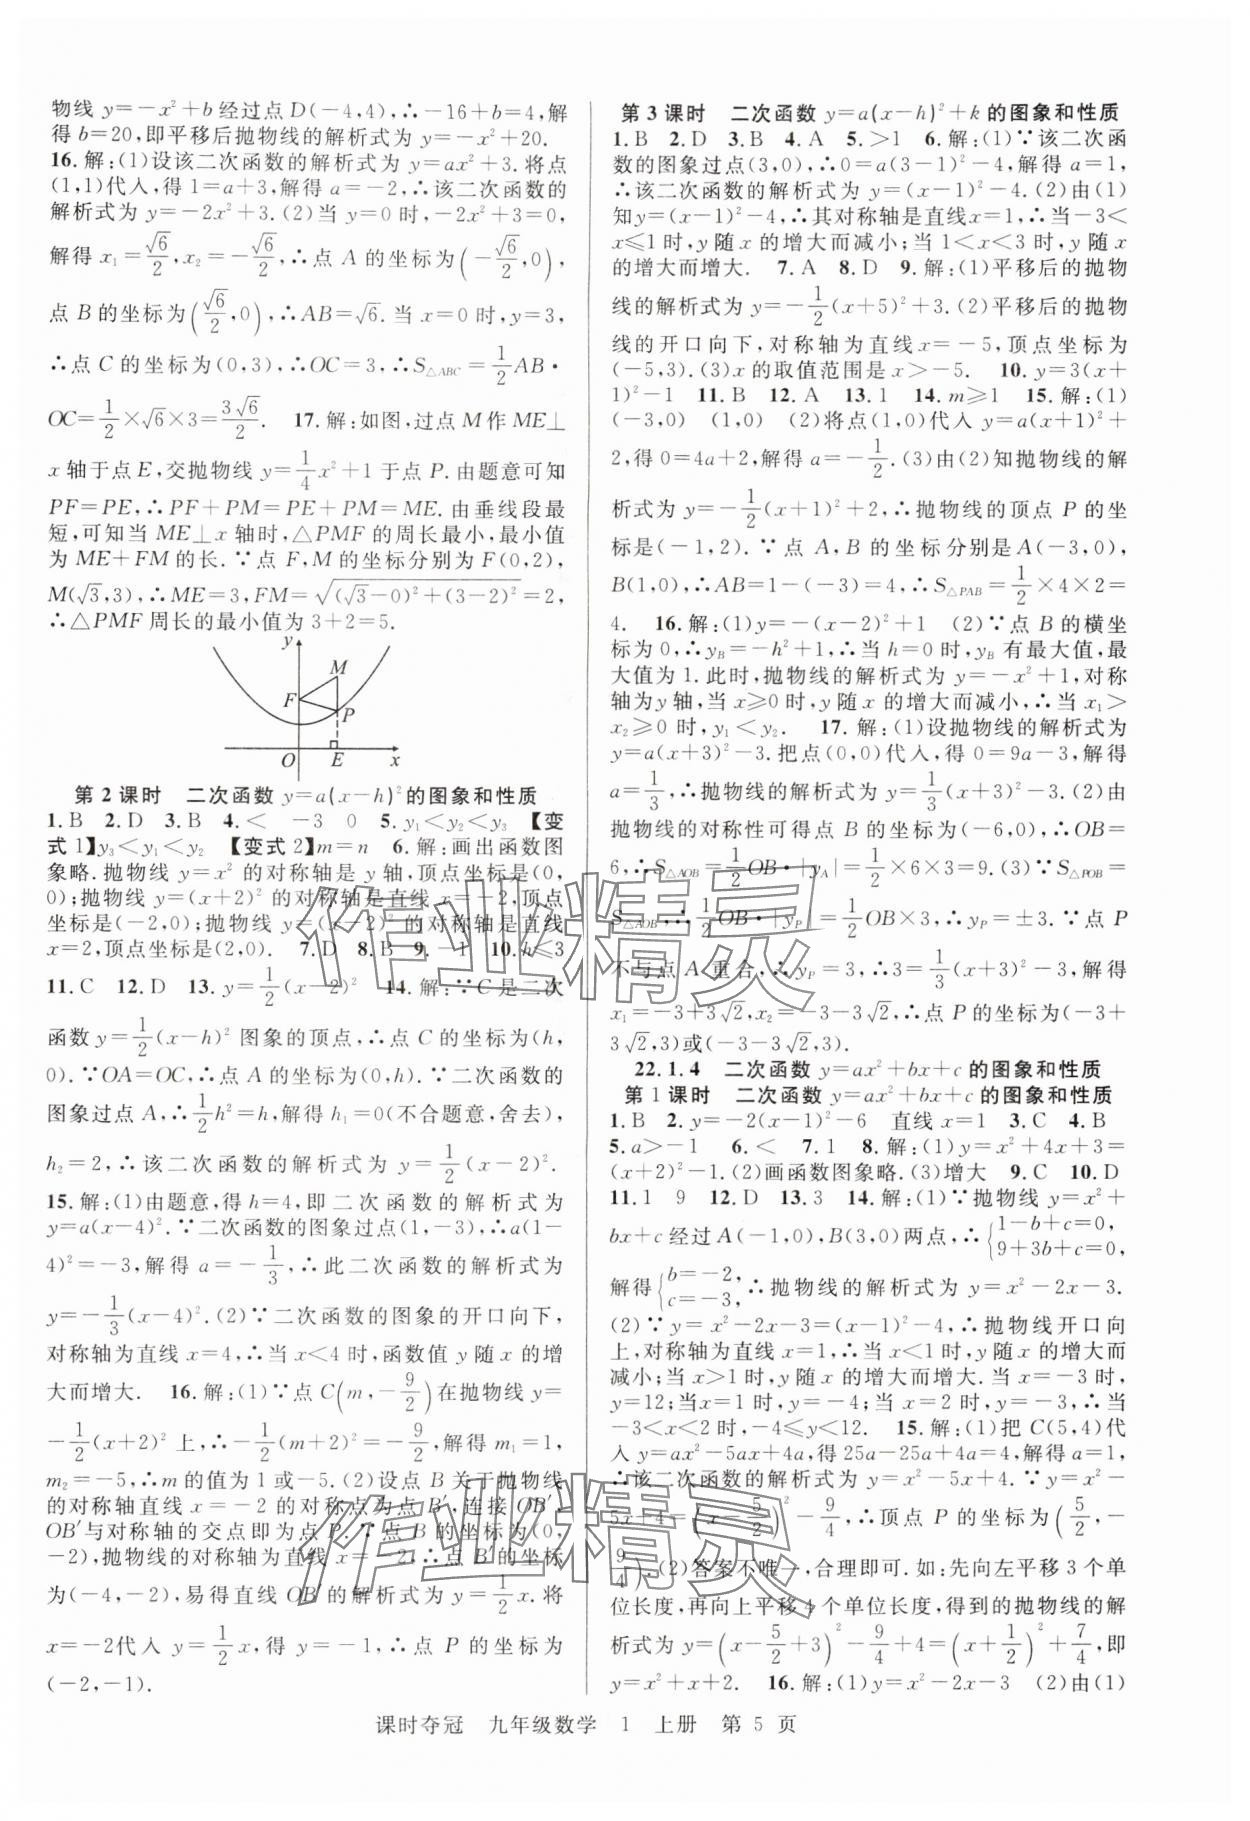 物线 y=-x²+b 经过点 D(-4,4),∴-16+b=4,解
得 b=20,即平移后抛物线的解析式为 y=-x²+20.
16.解:(1)设该二次函数的解析式为 y=ax²+3.将点
(1,1)代入,得 1=a+3,解得 a=-2,∴该二次函数的
解析式为 y=-2x²+3.(2)当 y=0 时,-2x²+3=0,
解得 x₁=√6/2,x₂=-√6/2,∴点 A 的坐标为(-√6/2,0),
点 B 的坐标为(√6/2,0),∴AB=√6.当 x=0 时,y=3,
∴点 C 的坐标为(0,3),∴OC=3,∴S△ABC=1/2AB·
OC=1/2×√6×3=3√6/2. 17.解:如图,过点 M 作 ME⊥
x 轴于点 E,交抛物线 y=1/4x²+1 于点 P.由题意可知
PF=PE,∴PF+PM=PE+PM=ME.由垂线段最
短,可知当 ME⊥x 轴时,△PMF 的周长最小,最小值
为 ME+FM 的长.∵点 F,M 的坐标分别为 F(0,2),
M(√3,3),∴ME=3,FM=√((√3-0)²+(3-2)²)=2,
∴△PMF 周长的最小值为 3+2=5.
y
M
F
P
O E x
第 2 课时 二次函数 y=a(x-h)²的图象和性质
1.B 2.D 3.B 4.< -3 0 5.y₁<y₂<y₃ 【变
式 1】y₃<y₁<y₂ 【变式 2】m=n 6.解:画出函数图
象略.抛物线 y=x² 的对称轴是 y 轴,顶点坐标是(0,
0);抛物线 y=(x+2)² 的对称轴是直线 x=-2,顶点
坐标是(-2,0);抛物线 y=(x-2)² 的对称轴是直线
x=2,顶点坐标是(2,0). 7.D 8.B 9.-1 10.h≤3
11.C 12.D 13.y=1/2(x-2)² 14.解:∵C 是二次
函数 y=1/2(x-h)² 图象的顶点,∴点 C 的坐标为(h,
0).∵OA=OC,∴点 A 的坐标为(0,h).∵二次函数的
图象过点 A,∴1/2h²=h,解得 h₁=0(不合题意,舍去),
h₂=2,∴该二次函数的解析式为 y=1/2(x-2)².
15.解:(1)由题意,得 h=4,即二次函数的解析式为
y=a(x-4)².∵二次函数的图象过点(1,-3),∴a(1-
4)²=-3,解得 a=-1/3,∴此二次函数的解析式为
y=-1/3(x-4)².(2)∵二次函数的图象的开口向下,
对称轴为直线 x=4,∴当 x<4 时,函数值 y 随 x 的增
大而增大. 16.解:(1)∵点 C(m,-9/2)在抛物线 y=
-1/2(x+2)² 上,∴-1/2(m+2)²=-9/2,解得 m₁=1,
m₂=-5,∴m 的值为 1 或-5.(2)设点 B 关于抛物线
的对称轴直线 x=-2 的对称点为点 B′,连接 OB′,
OB′与对称轴的交点即为点 P.∵点 B 的坐标为(0,
-2),抛物线的对称轴为直线 x=-2,∴点 B′的坐标
为(-4,-2),易得直线 OB′的解析式为 y=1/2x.将
x=-2代入 y=1/2x,得 y=-1,∴点 P 的坐标为
(-2,-1).
第 3 课时 二次函数 y=a(x-h)²+k 的图象和性质
1.B 2.D 3.B 4.A 5.>1 6.解:(1)∵该二次函
数的图象过点(3,0),∴0=a(3-1)²-4,解得 a=1,
∴该二次函数的解析式为 y=(x-1)²-4.(2)由(1)
知y=(x-1)²-4,∴其对称轴是直线x=1,∴当-3<
x≤1 时,y 随 x 的增大而减小;当 1<x<3 时,y 随 x
的增大而增大. 7.A 8.D 9.解:(1)平移后的抛物
线的解析式为 y=-1/2(x+5)²+3.(2)平移后的抛物
线的开口向下,对称轴为直线 x=-5,顶点坐标为
(-5,3).(3)x 的取值范围是 x>-5. 10.y=3(x+
1)²-1 11.B 12.A 13.1 14.m≥1 15.解:(1)
(-3,0) (1,0) (2)将点(1,0)代入 y=a(x+1)²+
2,得 0=4a+2,解得 a=-1/2.(3)由(2)知抛物线的解
析式为 y=-1/2(x+1)²+2,∴抛物线的顶点 P 的坐
标是(-1,2).∵点 A,B 的坐标分别是A(-3,0),
B(1,0),∴AB=1-(-3)=4,∴S△PAB=1/2×4×2=
4. 16.解:(1)y=-(x-2)²+1 (2)∵点 B 的横坐
标为 0,∴yB=-h²+1,∴当 h=0 时,yB 有最大值,最
大值为 1.此时,抛物线的解析式为 y=-x²+1,对称
轴为y 轴,当 x≥0 时,y 随 x 的增大而减小,∴当 x₁>
x₂≥0 时,y₁<y₂. 17.解:(1)设抛物线的解析式为
y=a(x+3)²-3.把点(0,0)代入,得 0=9a-3,解得
a=1/3,∴抛物线的解析式为 y=1/3(x+3)²-3.(2)由
抛物线的对称性可得点 B 的坐标为(-6,0),∴OB=
6,∴S△AOB=1/2OB·|yA|=1/2×6×3=9.(3)∵S△POB=
S△AOB,∴1/2OB·|yP|=1/2OB×3,∴yP=±3.∵点 P
不与点 A 重合,∴yP=3,∴3=1/3(x+3)²-3,解得
x₁=-3+3√2,x₂=-3-3√2,∴点 P 的坐标为(-3+
3√2,3)或(-3-3√2,3).
22.1.4 二次函数 y=ax²+bx+c 的图象和性质
第 1 课时 二次函数 y=ax²+bx+c 的图象和性质
1.B 2.y=-2(x-1)²-6 直线 x=1 3.C 4.B
5.a>-1 6.< 7.1 8.解:(1)y=x²+4x+3=
(x+2)²-1.(2)画函数图象略.(3)增大 9.C 10.D
11.1 9 12.D 13.3 14.解:(1)∵抛物线 y=x²+
bx+c 经过 A(-1,0),B(3,0)两点,∴{1-b+c=0, 9+3b+c=0,
解得{b=-2, c=-3,∴抛物线的解析式为 y=x²-2x-3.
(2)∵y=x²-2x-3=(x-1)²-4,∴抛物线开口向
上,对称轴为直线 x=1,∴当 x<1 时,y 随 x 的增大
而减小;当 x>1 时,y 随 x 的增大而增大.当 x=-3 时,
y=12;当x=1 时,y=-4;当 x=2 时,y=-3,∴当
-3<x<2 时,-4≤y<12. 15.解:(1)把 C(5,4)代
入 y=ax²-5ax+4a,得 25a-25a+4a=4,解得 a=1,
∴该二次函数的解析式为 y=x²-5x+4.∵y=x²-
5x+4=(x-5/2)²-9/4,∴顶点 P 的坐标为(5/2,-
9/4).(2)答案不唯一,合理即可.如:先向左平移 3 个单
位长度,再向上平移 4 个单位长度,得到的抛物线的解
析式为 y=(x-5/2+3)²-9/4+4=(x+1/2)²+7/4,即
y=x²+x+2. 16.解:(1)y=x²-2x-3 (2)由(1)
课时夺冠 九年级数学 1 上册 第 5 页
作业精灵
作业精灵